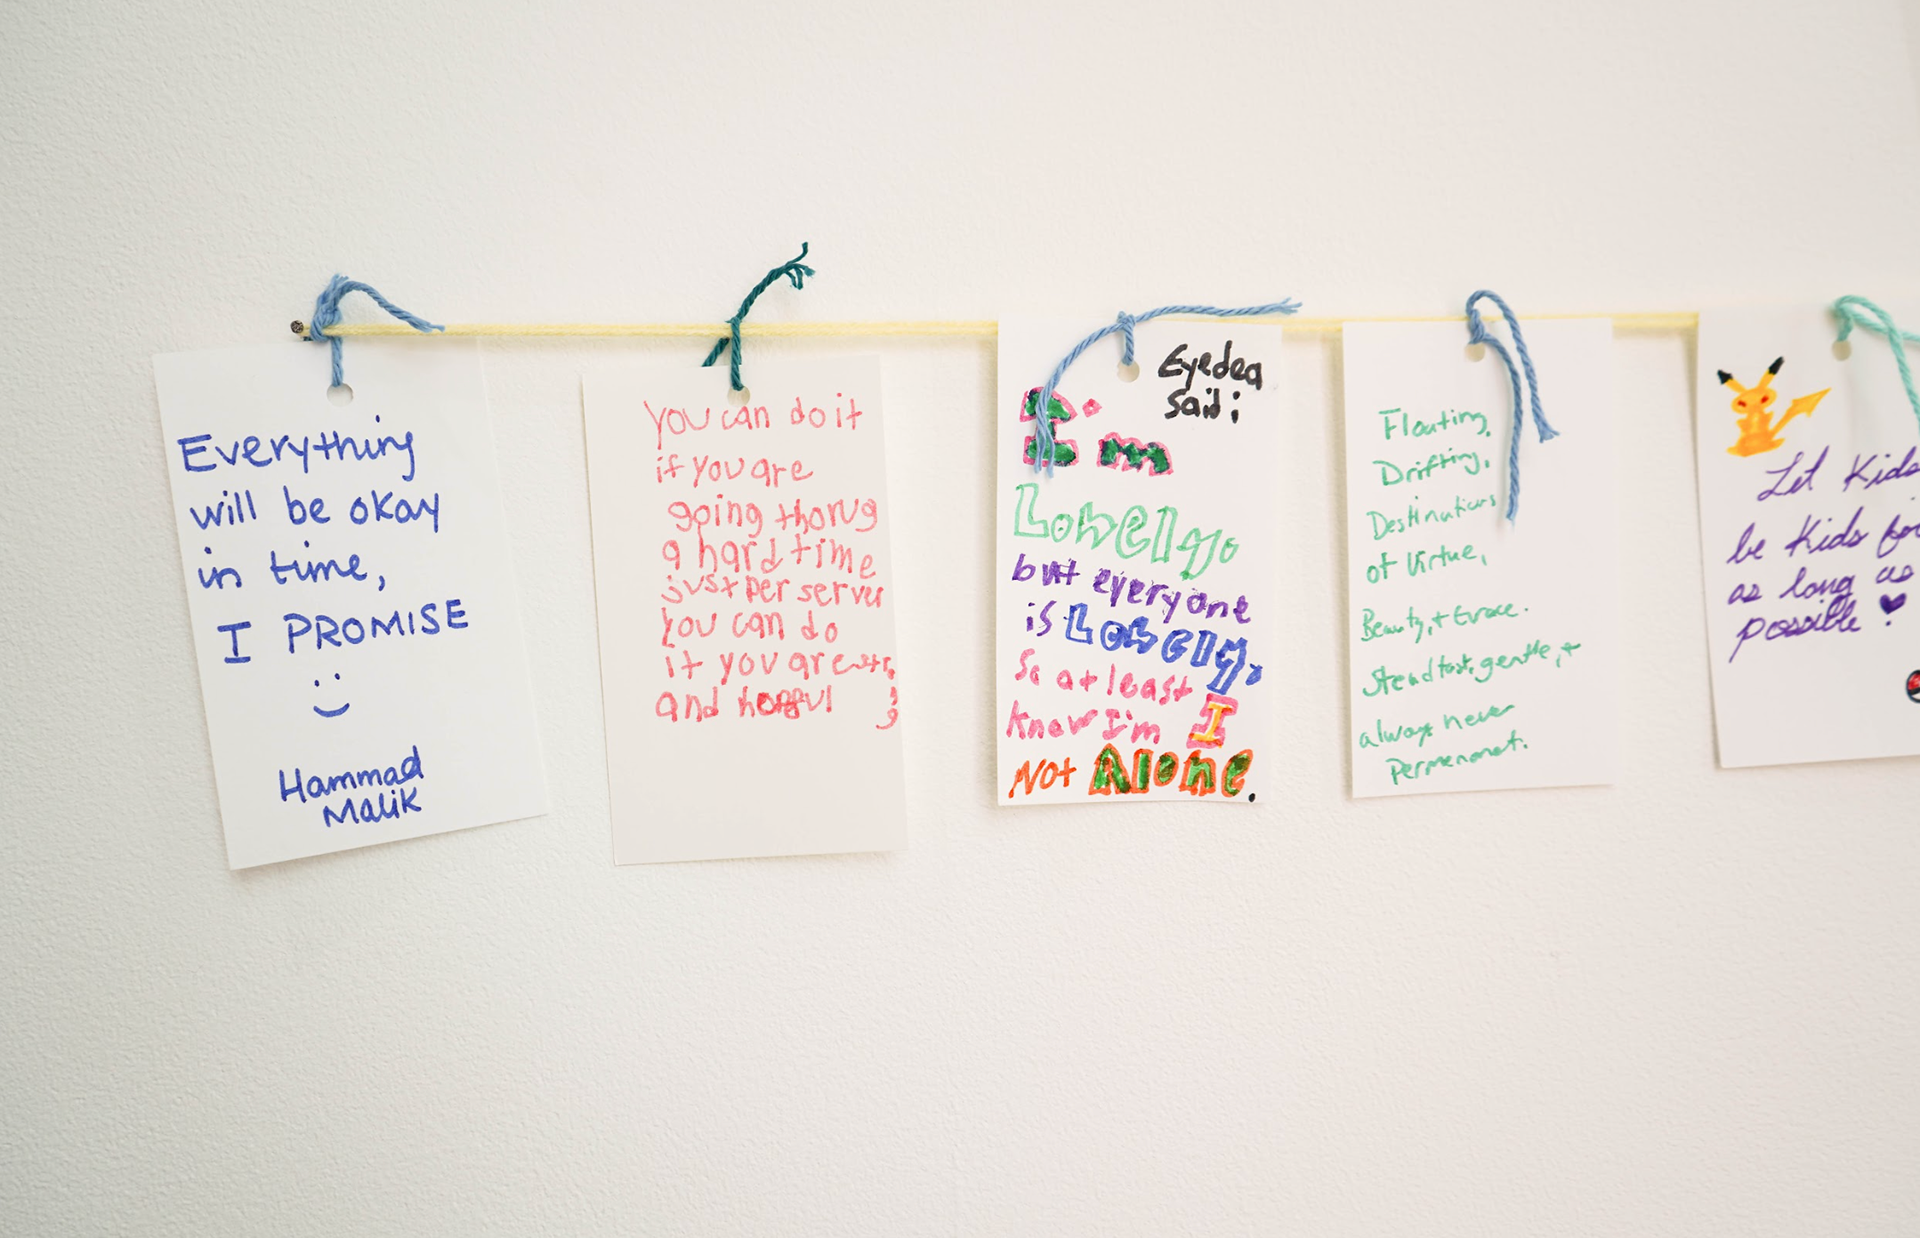 Everything
will be okay
in time,
I PROMISE
Hammad
Malik
you can do it
if you are
going thorug
a hard time
just per server
you can do
it you are
and
Eyedea
said;
I'm
Lonely,
but everyone
is Lonely,
So at least I
know I'm
Not Alone.
Floating,
Drifting,
Destinations
of Virtue,
Beauty, + Grace.
Steadfast, gentle, +
always never
Permenant.
Let Kids
be Kids for
as long as
possible